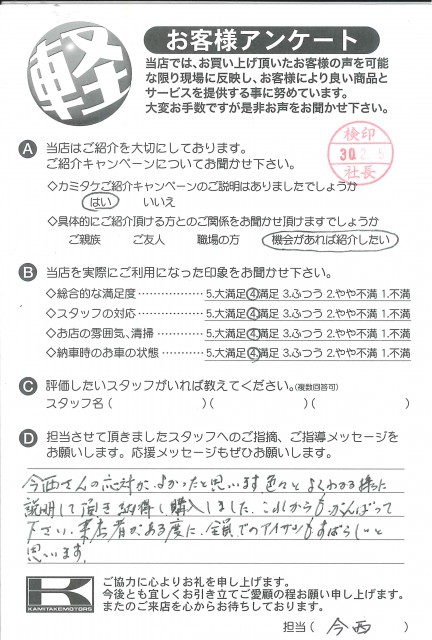 軽
お客様アンケート
当店では、お買い上げ頂いたお客様の声を可能
な限り現場に反映し、お客様により良い商品と
サービスを提供する事に努めています。
大変お手数ですが是非お声をお聞かせ下さい。
検印
30.2.5
社長
A 当店はご紹介を大切にしております。
ご紹介キャンペーンについてお聞かせ下さい。
◇カミタケご紹介キャンペーンのご説明はありましたでしょうか
はい いいえ
◇具体的にご紹介頂ける方とのご関係をお聞かせ頂けますでしょうか
ご親族 ご友人 職場の方 機会があれば紹介したい
B 当店を実際にご利用になった印象をお聞かせ下さい。
◇総合的な満足度……………5.大満足 4.満足 3.ふつう 2.やや不満 1.不満
◇スタッフの対応……………5.大満足 4.満足 3.ふつう 2.やや不満 1.不満
◇お店の雰囲気、清掃…………5.大満足 4.満足 3.ふつう 2.やや不満 1.不満
◇納車時のお車の状態…………5.大満足 4.満足 3.ふつう 2.やや不満 1.不満
C 評価したいスタッフがいれば教えてください。(複数回答可)
スタッフ名( )( )( )
D 担当させて頂きましたスタッフへのご指摘、ご指導メッセージを
お願いします。応援メッセージもぜひお願いします。
今西さんの応対が、よかったと思います。色々とよくわかる様に
説明して頂き納得し購入しました。これからもがんばって
下さい。来店者がある度に、全員でのアイサツもすばらしいと
思います。
K
KAMITAKEMOTORS
ご協力に心よりお礼を申し上げます。
今後とも宜しくお引き立てご愛顧の程お願い申し上げます。
またのご来店を心からお待ちしております。
担当( 今西 )